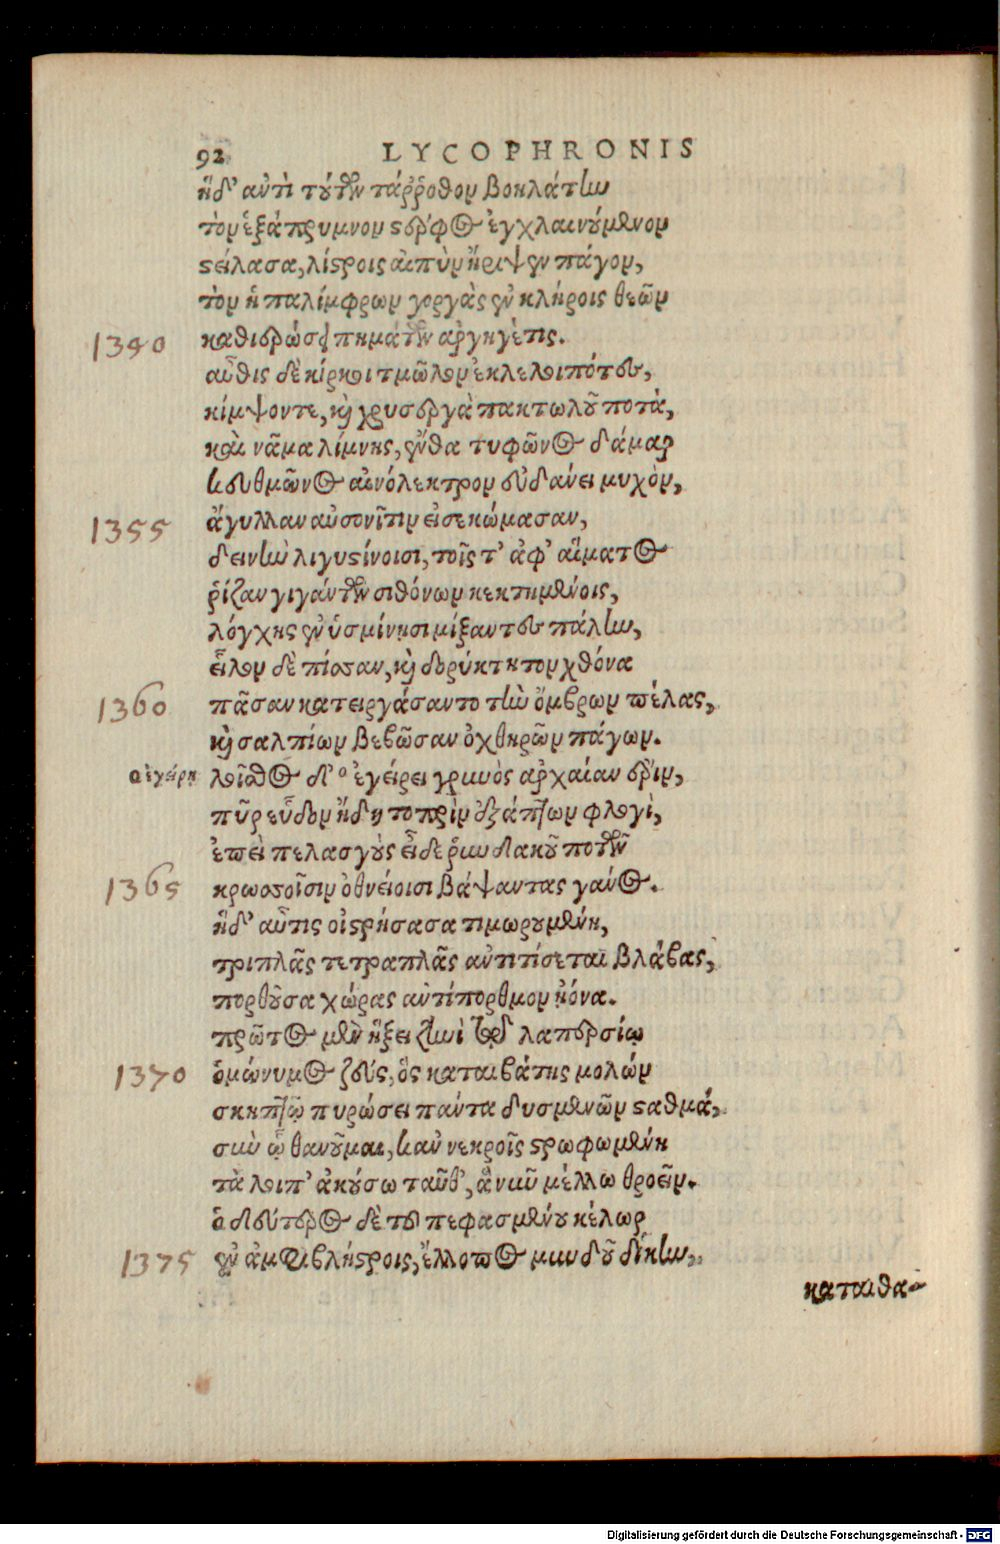 92 LYCOPHRONIS
ἡδ' αὐτὶ τούτων τάρῤοθον βοηλάτην
τὸν ἑξάπρυμνον στέρφος ἐγχλαινούμενον
στείλασα, λίστροις αἰπὺν ἤρειψεν πάγον,
τὸν ἡ παλίμφρων γοργὰς ἐν κλήροις θεῶν
1340 καθιδρώσε πημάτων ἀρχηγέτις.
αὖθις δὲ κίρκοι τμῶλον ἐκλελοιπότες,
κίμψοντε, καὶ χρυσεργὰ πακτωλοῦ ποτὰ,
καὶ νᾶμα λίμνης, ἔνθα τυφῶνος δάμαρ
κευθμῶνος αἰνόλεκτρον εὐδανει μυχὸν,
1355 ἄγυλλαν αὐσονῖτιν εἰσεκώμασαν,
δεινὴν λιγυστίνοισι, τοῖς τ' ἀφ' αἵματος
ῥίζαν γιγάντων σιθόνων κεκτημένοις,
λόγχης ἐν ὑσμίνησι μίξαντες πάλην,
εἷλον δὲ πίσσαν, καὶ δορύκτητον χθόνα
1360 πᾶσαν κατειργάσαντο τὴν ὄμβρων πέλας,
καὶ σαλπίων βεβῶσαν ὀχθηρῶν πάγων.
α ἐγέρη λοῖσθος δ' ᵅ ἐγείρει γρυνὸς ἀρχαίαν ἔριν,
πῦρ εὗδον ἤδη τοπρὶν ἐξάπτων φλογὶ,
ἐπεὶ πελασγοὺς εἶδε ῥυνδακοῦ ποτῶν
1365 κρωσσοῖσιν ὀθνείοισι βάψαντας γάνος.
ἡδ' αὖτις οἰστρήσασα τιμωρουμένη,
τριπλᾶς τετραπλᾶς αὐτιτίσεται βλάβας,
πορθοῦσα χώρας ἀντίπορθμον ἠόνα.
πρῶτος μὲν ἥξει ζηνὶ τῷ λαπερσίῳ
1370 ὁμώνυμος ζεύς, ὃς καταιβάτης μολών
σκηπτῷ πυρώσει πάντα δυσμενῶν σταθμά,
σὺν ᾧ θανοῦμαι, καν νεκροῖς στρωφωμένη
τὰ λοιπ' ἀκούσω ταῦθ', ἃ νῦν μέλλω θροεῖν.
ὁ δεύτερος δὲ του πεφασμένου κέλωρ
1375 ἐν ἀμφιβλήστροις, ἔλλοπος μυνδοῦ δίκην,
καταιθα-
Digitalisierung gefördert durch die Deutsche Forschungsgemeinschaft - DFG